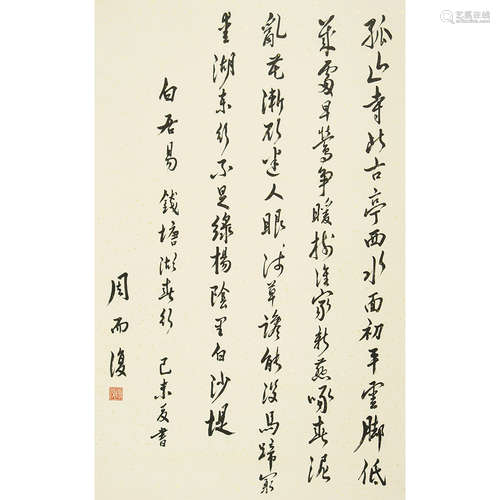 孤山寺北古亭西水面初平雲脚低
幾處早鶯争暖樹誰家新燕啄春泥
亂花漸欲迷人眼淺草讒能沒馬蹄最
愛湖東行不足綠楊陰里白沙堤
白居易 錢塘湖春行 己未夏書
周而復